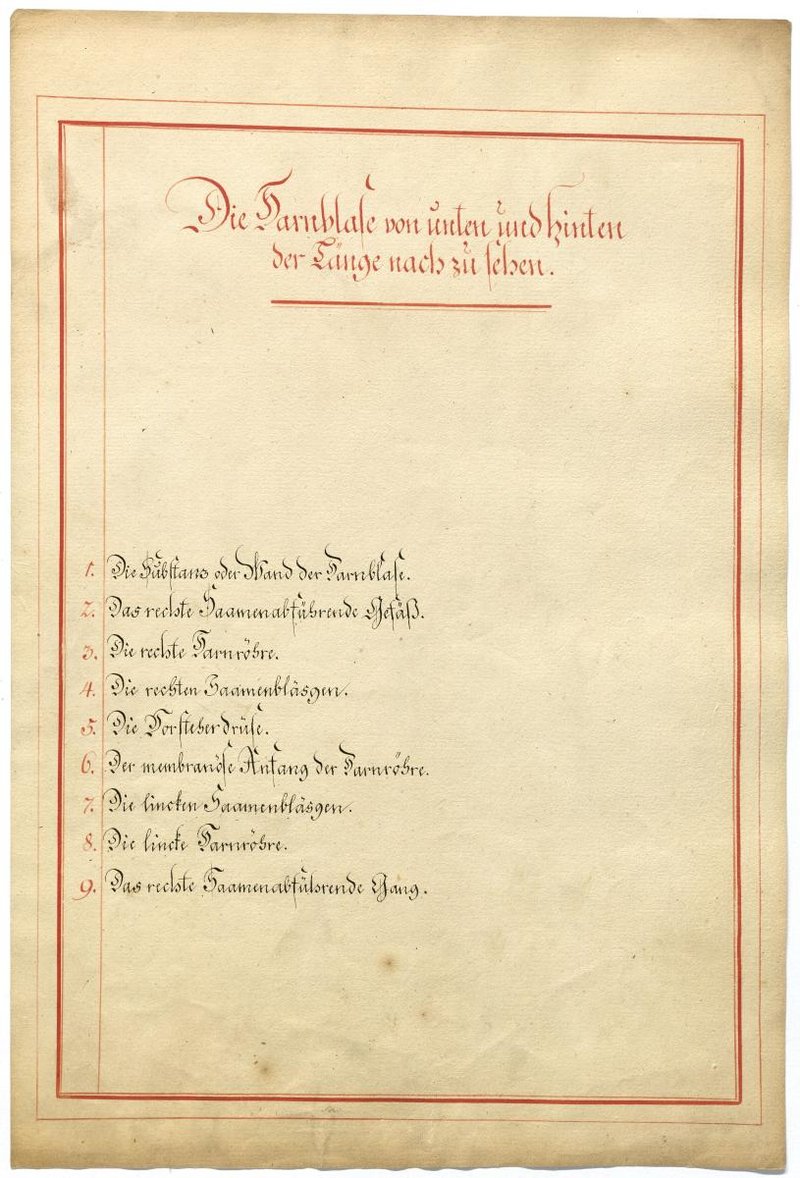 Die Harnblase von unten und hinten
der Länge nach zu sehen.
1. Die Substanz oder Wand der Harnblase.
2. Das rechte Saamenabführende Gefäß.
3. Die rechte Harnröhre.
4. Die rechten Saamenbläsgen.
5. Die Vorsteherdrüse.
6. Der membranöse Anfang der Harnröhre.
7. Die lincken Saamenbläsgen.
8. Die lincke Harnröhre.
9. Das rechte Saamenabführende Gang.